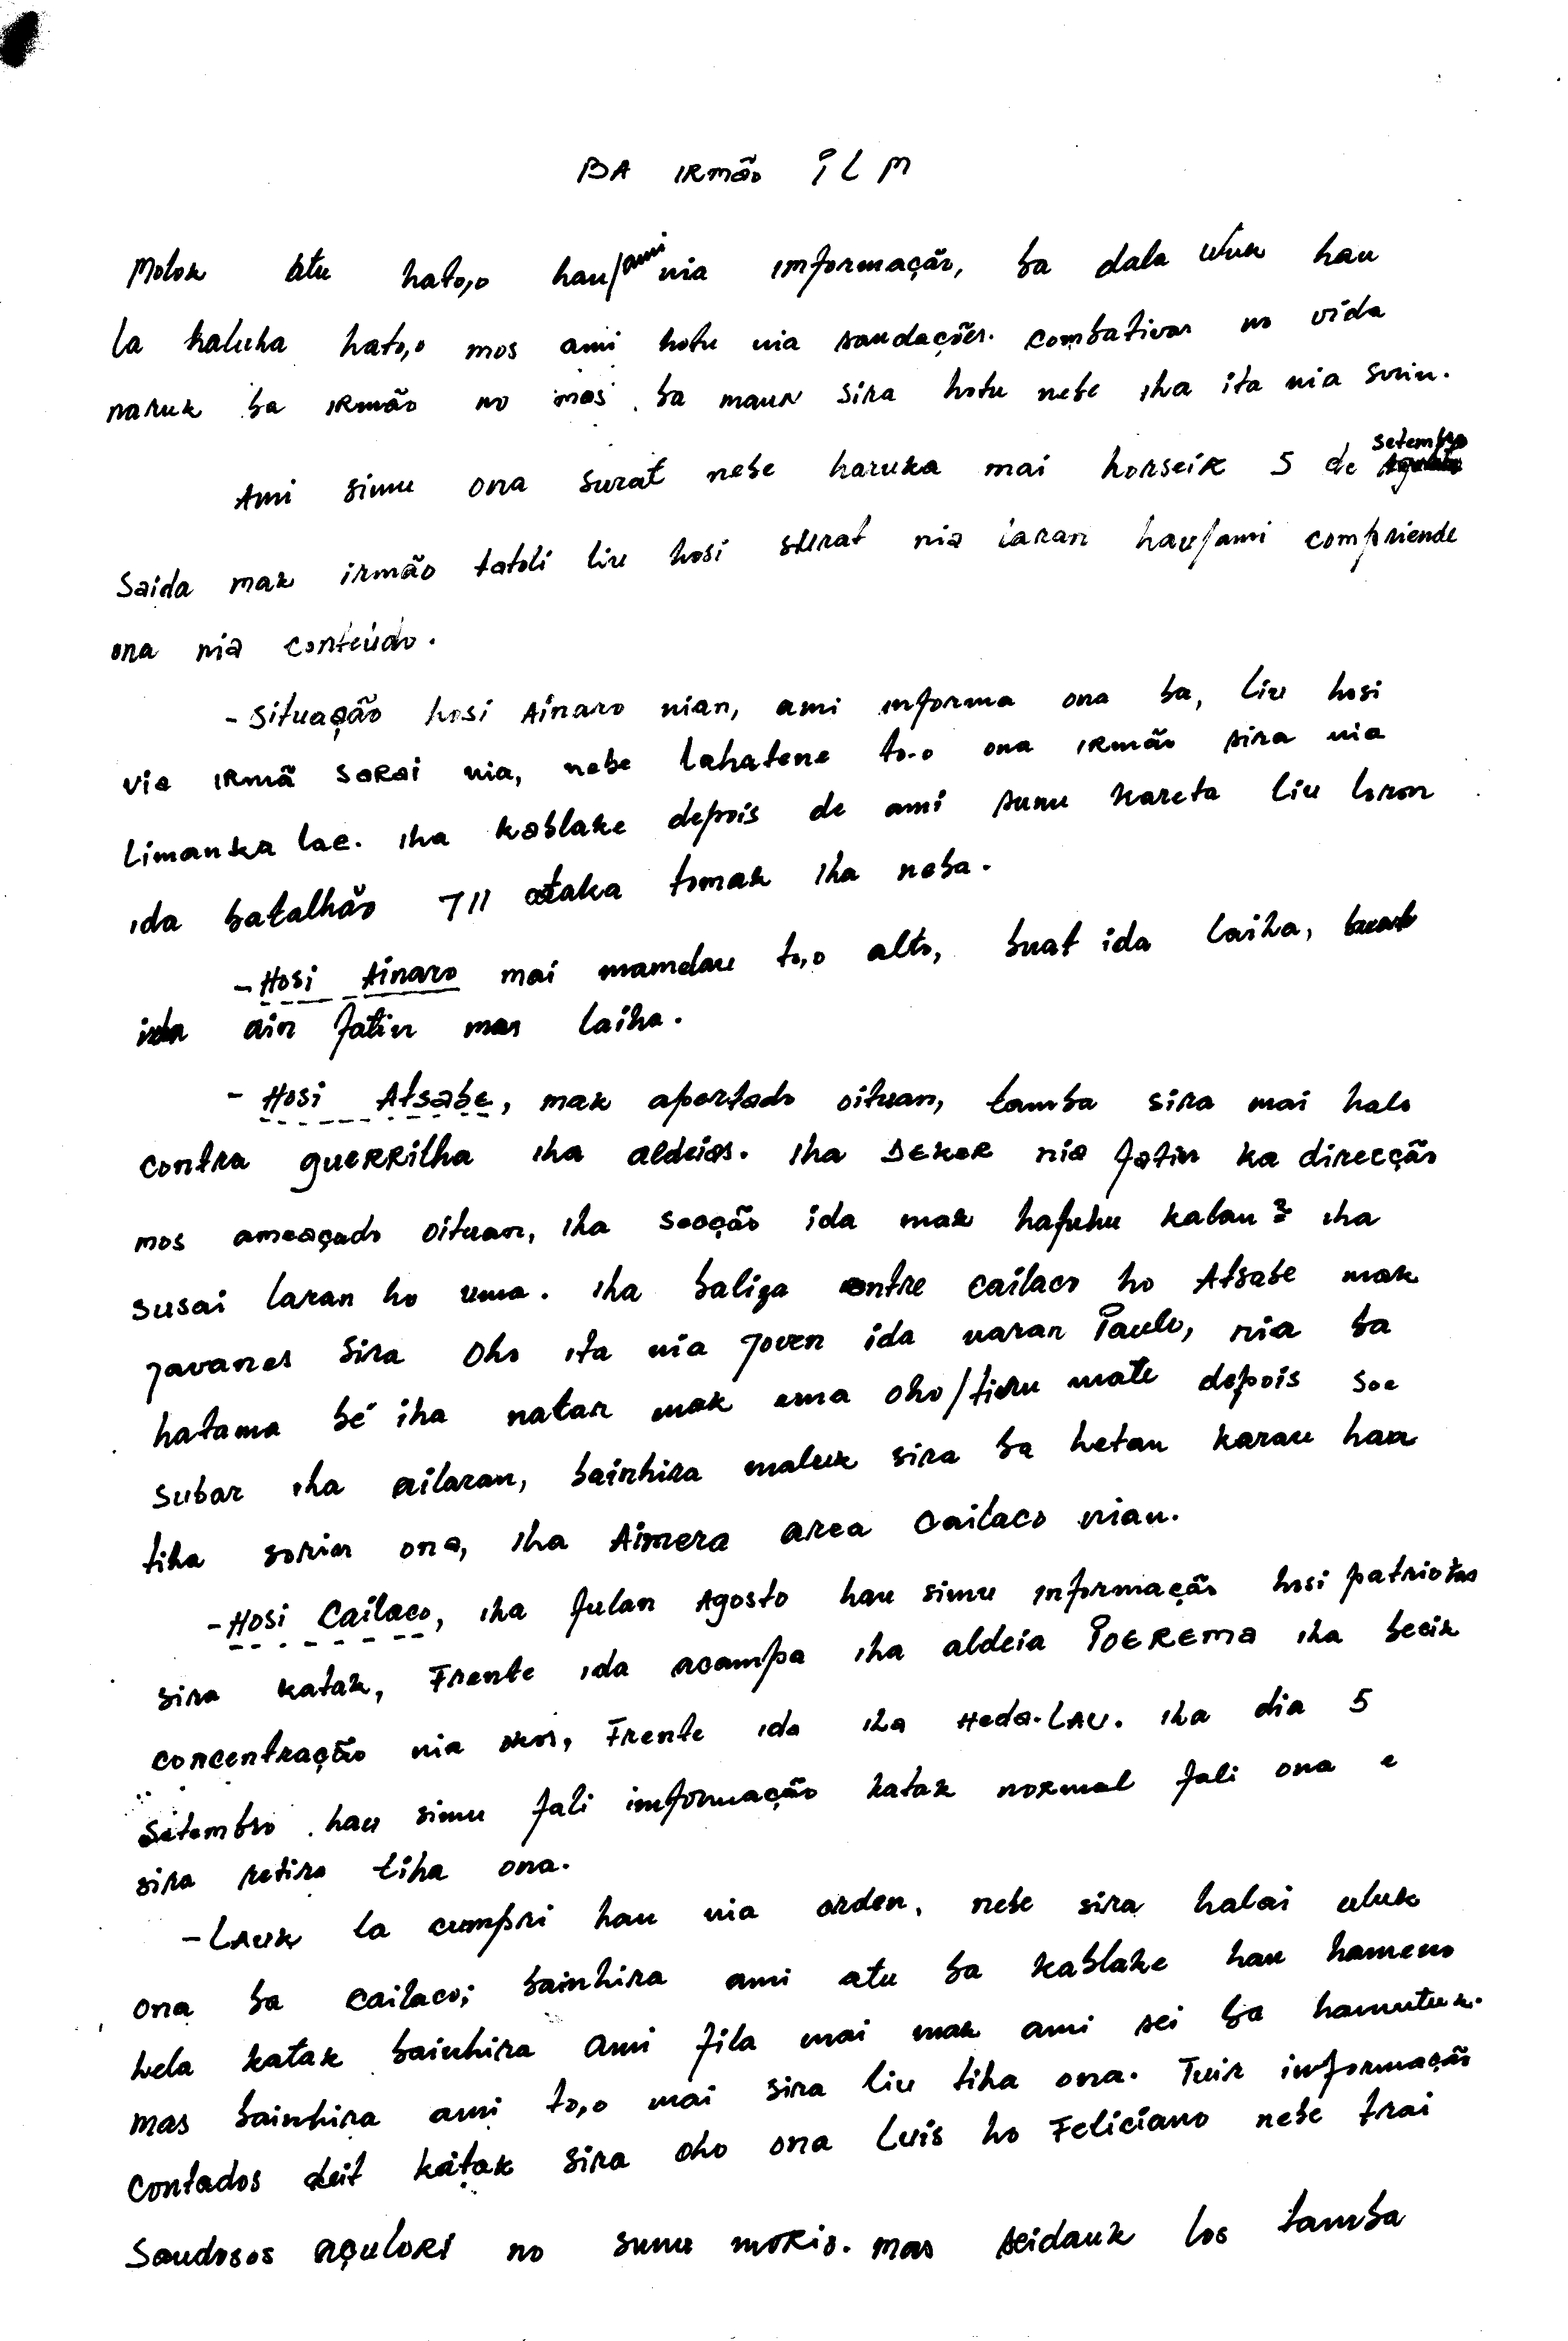 BA IRmão ILM
Molok atu hato,o hau/ami nia imformação, ba dala uluk hau
la haluha hato,o mos ami hotu nia saudações. combativas no vida
naruk ba IRmão no mos ba maun sira hotu nebe iha ita nia sorin.
Ami simu ona surat nebe haruka mai horseik 5 de setembro
Saida mak irmão tatoli liu hosi surat nia laran hau/ami compriende
ona nia conteúdo.
- Situação hosi Ainaro nian, ami informa ona ba, liu hosi
via IRmã SARAI nia, nebe lahatene to.o ona IRmão sira nia
limanka lae. iha kablake depois de ami sunu kareta liu loron
ida batalhão 711 ataka tomak iha neba.
- Hosi Ainaro mai mamelau to,o alto, buat ida laiha,
ain fatin mas laiha.
- Hosi Atsabe, mak apertado oituan, tamba sira mai halo
contra gueRRilha iha aldeias. iha DEKER nia fatin ka direcção
mos ameaçado oituan, iha secção ida mak hafuhu kalan 3 iha
susai laran ho uma. iha baliza entre cailaco ho Atsabe mak
javanes sira oho ita nia joven ida naran Paulo, nia ba
hatama bé iha natar mak ema oho/tiru mate depois soe
subar iha ailaran, bainhira maluk sira ba hetan karau han
tiha sorin ona, iha Aimera area Cailaco nian.
- Hosi Cailaco, iha fulan Agosto hau simu informação hosi patriotas
sira katak, Frente ida acampa iha aldeia POEREMA iha becik
concentração nia okos, Frente ida iha Heda-LAU. iha dia 5
Setembro hau simu fali imformação katak normal fali ona e
sira retira tiha ona.
- LAUK la cumpri hau nia orden, nebe sira halai uluk
ona ba cailaco; bainhira ami atu ba kablake hau hameno
hela katak bainhira Ami fila mai mak ami sei ba hamutuk.
mas bainhira ami to,o mai sira liu tiha ona. Tuir informação
contados deit katak sira oho ona Luis ho Feliciano nebe trai
Saudosos AÇULORI no sunu moRis. mas seidauk los tamba